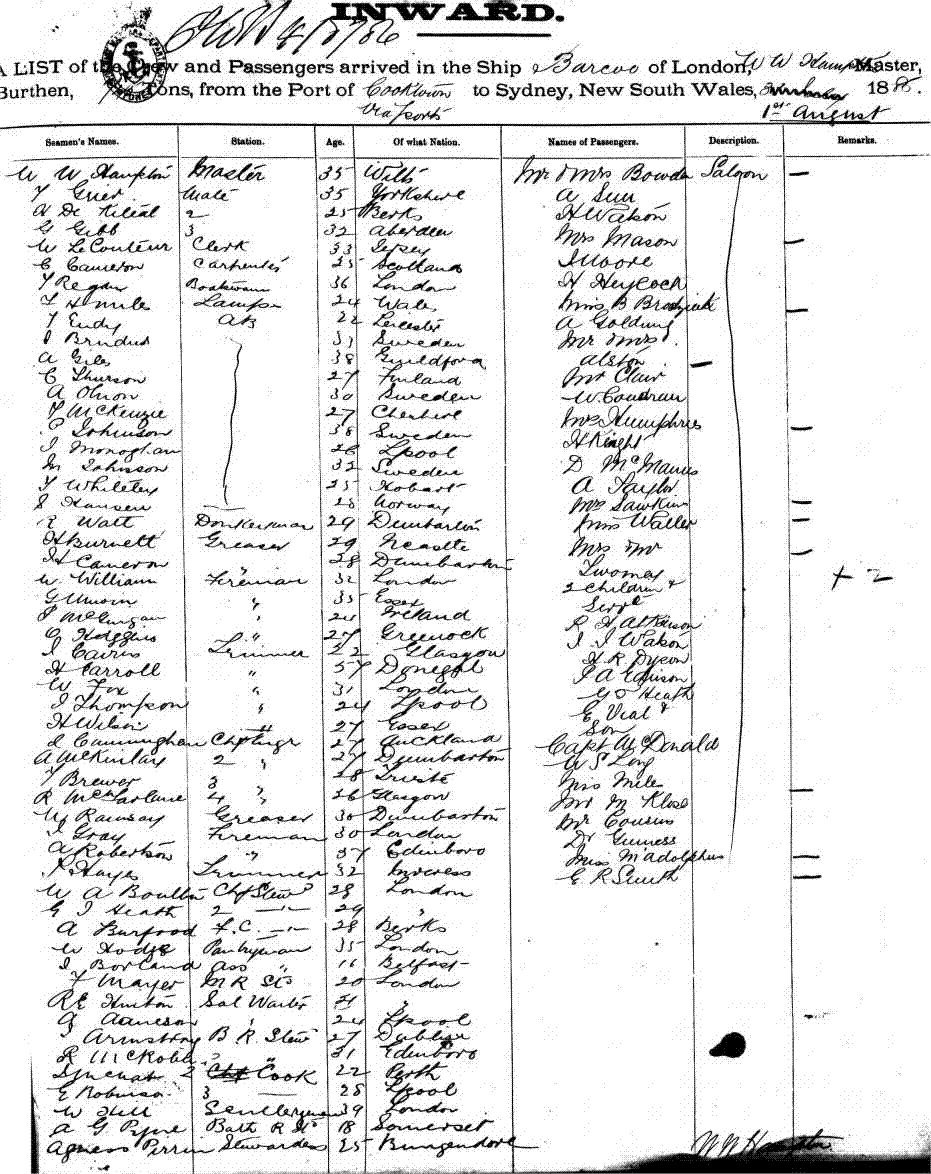 INWARD.
A LIST of the Crew and Passengers arrived in the Ship Barcoo of London, W W Hampton Master,
Burthen, Tons, from the Port of Cooktown to Sydney, New South Wales, 1st August 188
Via ports
Seamen's Names. Station. Age. Of what Nation. Names of Passengers. Description. Remarks.
W W Hampton Master 35 Wilts Mr & Mrs Bowden Saloon
Grier Mate 35 Yorkshire A Sun
2 25 Berks H Watson
G Gibb 3 32 Aberdeen Mrs Mason
W LeCouteur Clerk 33 Jersey J Moore
C Cameron Carpenter 25 Scotland H Heycock
T Regan Boatswain 36 London Miss B Brodziak
Lamps 24 Wales A Golding
T Endy AB 22 Leicester Mr & Mrs
33 Sweden Alston
A Giles 38 Guildford Mr Clair
C Thurson 27 Finland W Coudran
A Olson 30 Sweden Mrs Humphries
McKenzie 27 Cheshire H Knight
P Johnson 38 Sweden D McManus
J Monoghan 26 Lpool A Taylor
M Johnson 32 Sweden Mrs Sawkins
T Whiteley 25 Hobart Miss Waller
S Hansen 28 Norway Mrs & Mr
R Watt Donkeyman 29 Dumbarton Twomey
H Burnett Greaser 29 Ncastle 2 Children &
H Cameron " 28 Dumbarton Servt + 2
W William Fireman 32 London R H Atkinson
G Unwin " 35 Essex J J Watson
McGuigan " 24 Ireland H R Dyson
O Hodgins " 27 Greenock J A Edison
J Cairns Trimmer 22 Glasgow G S Heath
H Carroll " 57 Donegal E Vial &
W Fox " 31 London Son
J Thompson " 24 Lpool Capt McDonald
H Wilson " 27 Essex W S Long
J Cunningham Chf Engr 27 Auckland Miss Miles
A McKinlay 2 " 27 Dumbarton Mr M Klose
T Brewer 3 " 28 Trieste Mr Cousins
R McFarlane 4 " 26 Glasgow Dr Guiness
W Ramsay Greaser 30 Dumbarton Miss McAdolphus
J Gray Fireman 30 London E R Smith
A Robertson " 37 Edinboro
P Hayes Trimmer 32 Inverness
W A Boulton Chf Stewd 28 London
G J Heath 2 " 29 "
A Burfood F.C. " 28 Berks
W Hodge Pantryman 35 London
J Borland Ass " 16 Belfast
F Mayer M R St 20 London
R E Hinton Sal Waiter 21 "
24 Lpool
J Armstrong B R Stew 27 Dublin
R McRobb " 31 Edinboro
2 Cook 22 Perth
E Robinson 3 28 Lpool
W Hill Sculleryman 39 London
A G Pyne Bath R St 18 Somerset
Agness Perrin Stewardess 25 Bungendore
W W Hampton